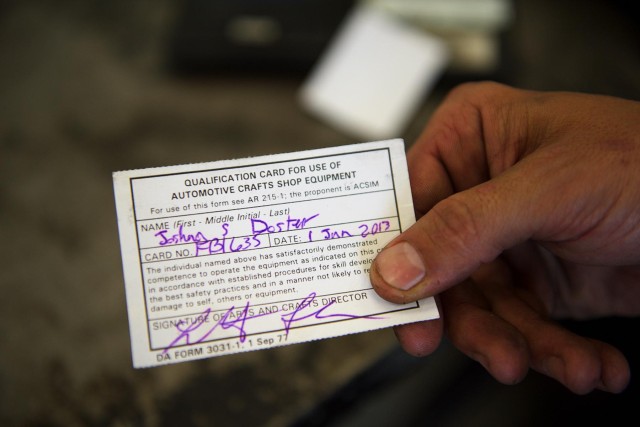 QUALIFICATION CARD FOR USE OF
AUTOMOTIVE CRAFTS SHOP EQUIPMENT
For use of this form see AR 215-1; the proponent is ACSIM
NAME (First - Middle Initial - Last)
Joshua S Doster
CARD NO. DATE: 1 Jun 2013
The individual named above has satisfactorily demonstrated
competence to operate the equipment as indicated on this
in accordance with established procedures for skill
the best safety practices and in a manner not likely to
damage to self, others or equipment.
SIGNATURE OF ARTS AND CRAFTS DIRECTOR
DA FORM 3031-1, 1 Sep 77